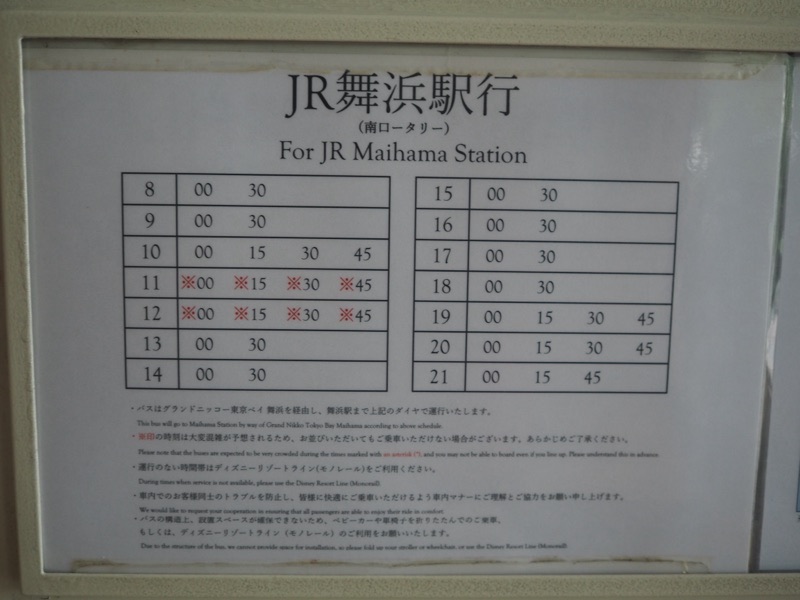 JR舞浜駅行
(南ロータリー)
For JR Maihama Station
8 00 30
9 00 30
10 00 15 30 45
11 ※00 ※15 ※30 ※45
12 ※00 ※15 ※30 ※45
13 00 30
14 00 30
15 00 30
16 00 30
17 00 30
18 00 30
19 00 15 30 45
20 00 15 30 45
21 00 15 45
・バスはグランドニッコー東京ベイ 舞浜を経由し、舞浜駅まで上記のダイヤで運行いたします。
This bus will go to Maihama Station by way of Grand Nikko Tokyo Bay Maihama according to above schedule.
・※印の時刻は大変混雑が予想されるため、お並びいただいてもご乗車いただけない場合がございます。あらかじめご了承ください。
Please note that the buses are expected to be very crowded during the times marked with an asterisk (*), and you may not be able to board even if you line up. Please understand this in advance.
・運行のない時間帯はディズニーリゾートライン(モノレール)をご利用ください。
During times when service is not available, please use the Disney Resort Line (Monorail)
・車内でのお客様同士のトラブルを防止し、皆様に快適にご乗車いただけるよう車内マナーにご理解とご協力をお願い申し上げます。
We would like to request your cooperation in ensuring that all passengers are able to enjoy their ride in comfort.
・バスの構造上、設置スペースが確保できないため、ベビーカーや車椅子を折りたたんでのご乗車、
もしくは、ディズニーリゾートライン(モノレール)のご利用をお願いいたします。
Due to the structure of the bus, we cannot provide space for installation, so please fold up your stroller or wheelchair, or use the Disney Resort Line (Monorail)